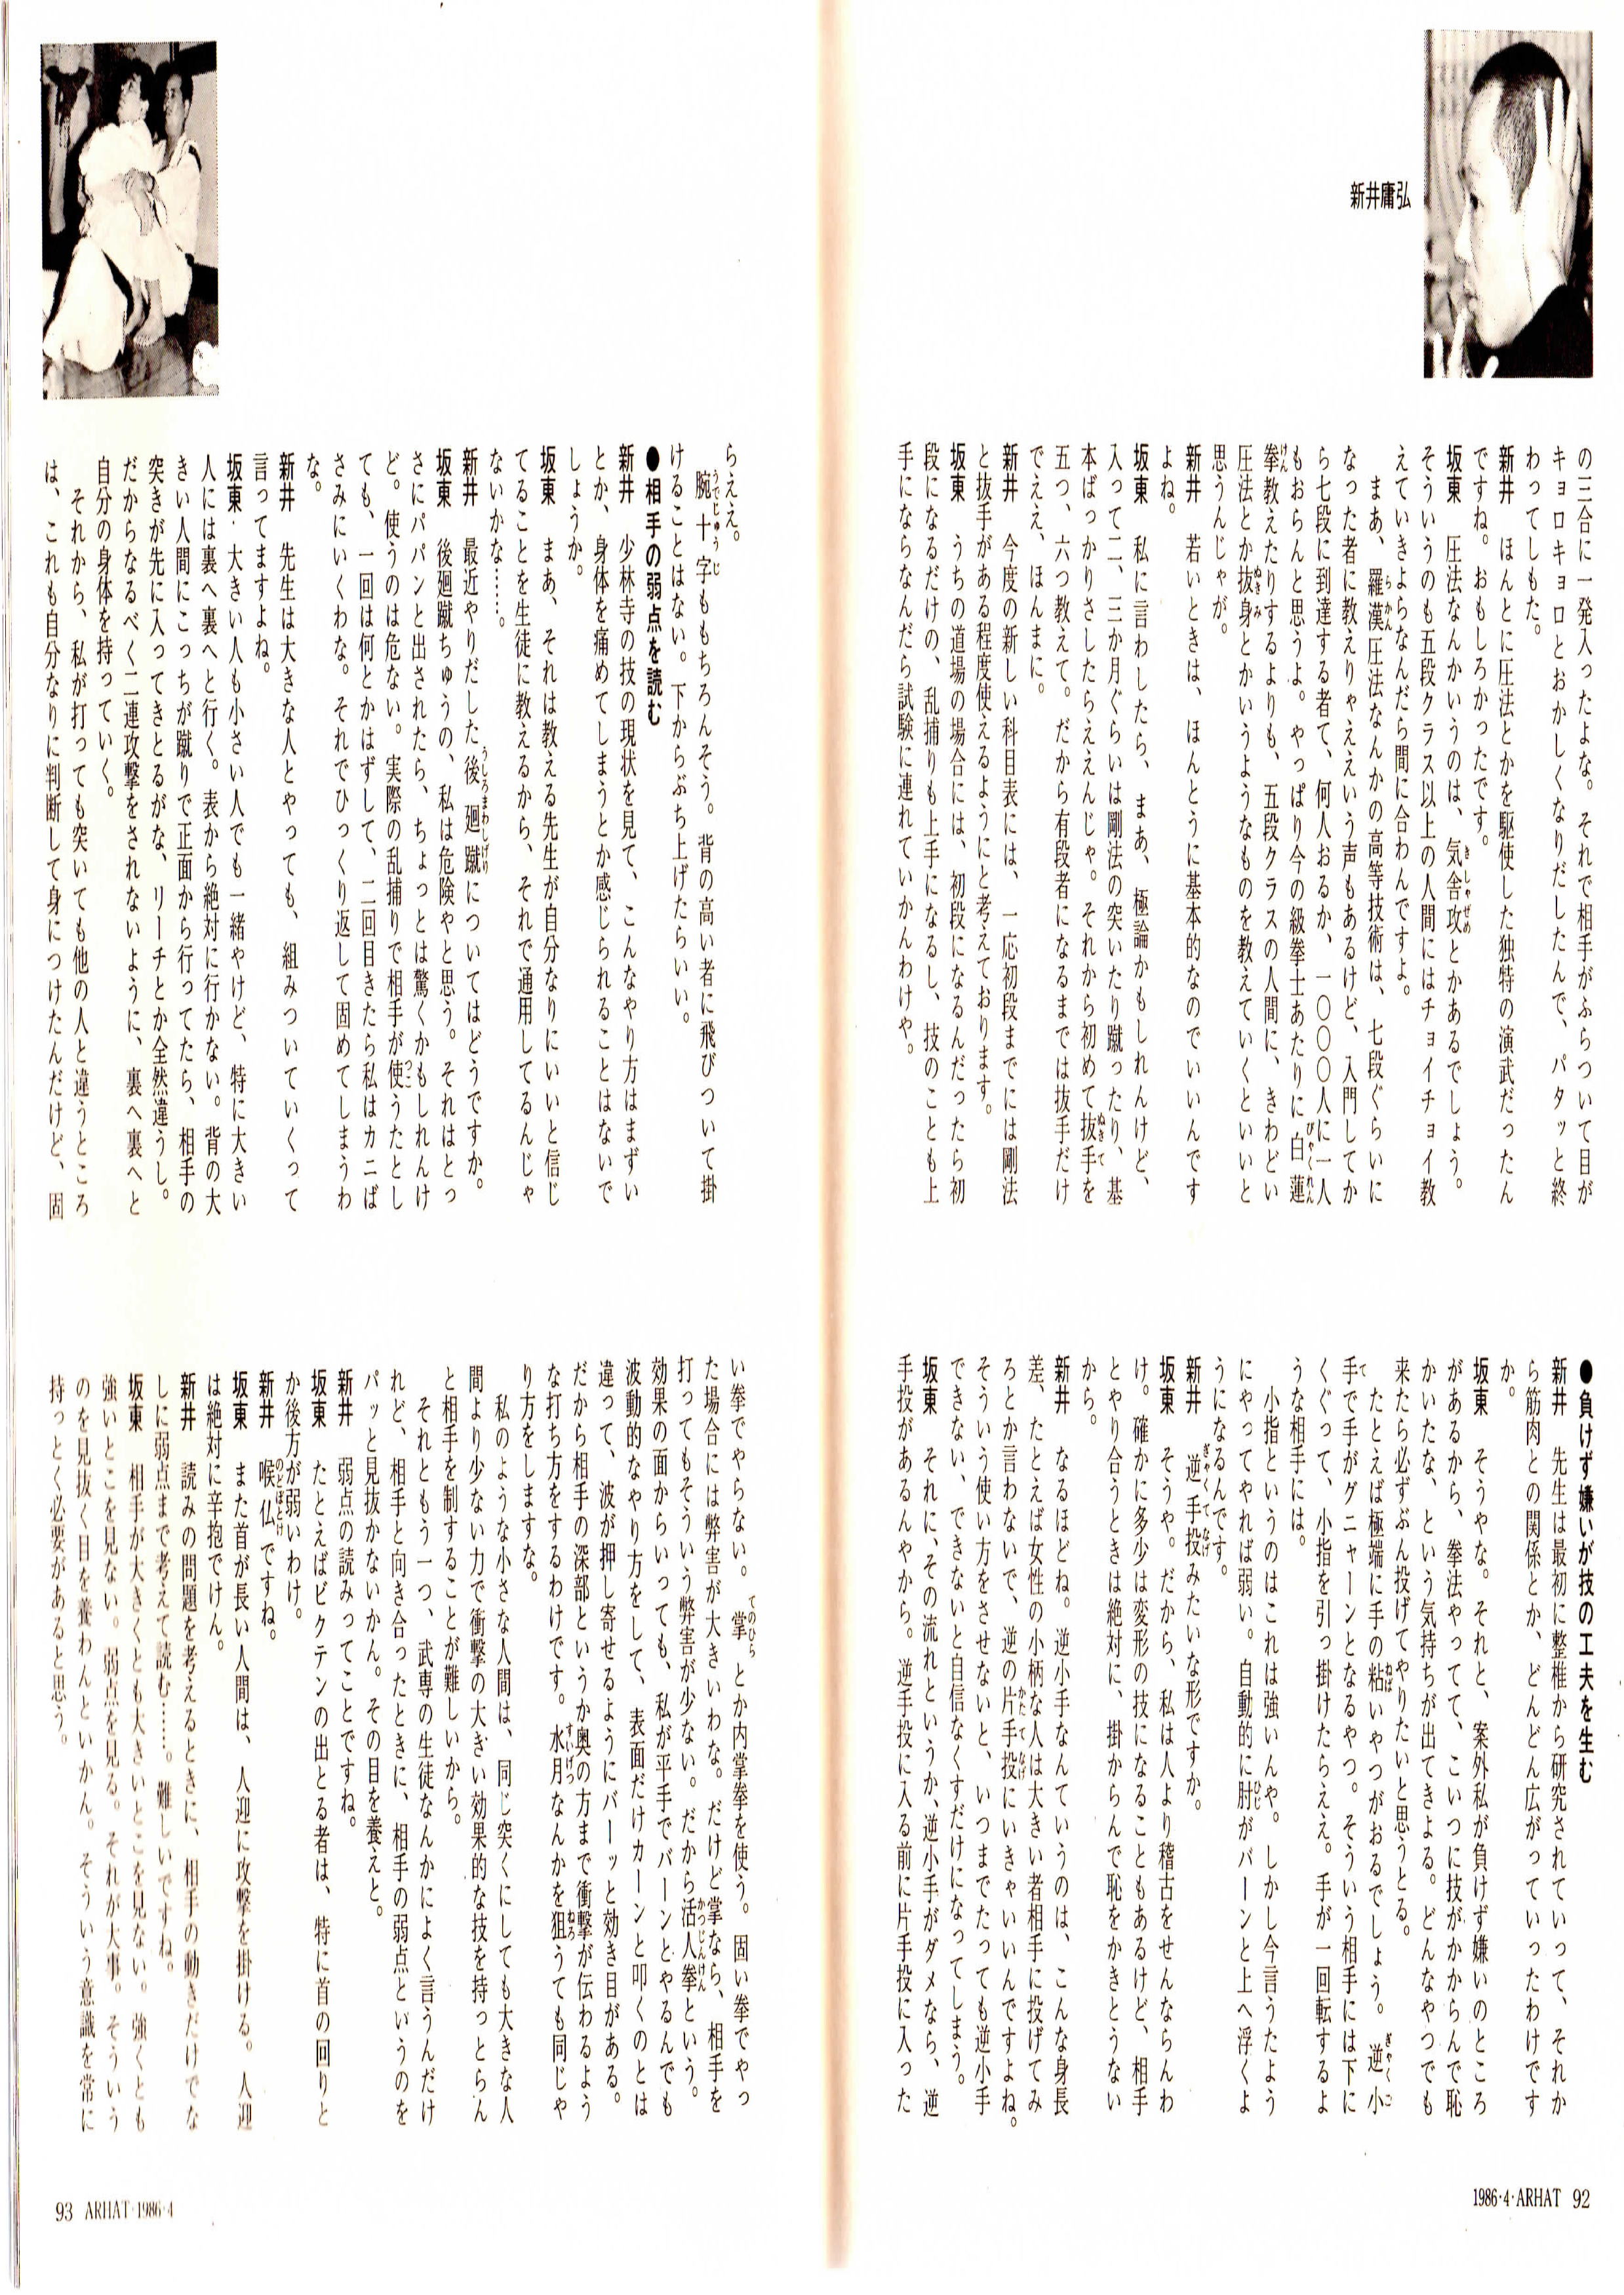 新井庸弘
の三合に一発入ったよな。それで相手がふらついて目が
キョロキョロとおかしくなりだしたんで、パタッと終
わってしもた。
新井　ほんとに圧法とかを駆使した独特の演武だったん
ですね。おもしろかったです。
坂東　圧法なんかいうのは、気舎攻とかあるでしょう。
そういうのも五段クラス以上の人間にはチョイチョイ教
えていきよらなんだら間に合わんですよ。
　まあ、羅漢圧法なんかの高等技術は、七段ぐらいに
なった者に教えりゃええいう声もあるけど、入門してか
ら七段に到達する者て、何人おるか、一〇〇〇人に一人
もおらんと思うよ。やっぱり今の級拳士あたりに白蓮
拳教えたりするよりも、五段クラスの人間に、きわどい
圧法とか抜身とかいうようなものを教えていくといいと
思うんじゃが。
新井　若いときは、ほんとうに基本的なのでいいんです
よね。
坂東　私に言わしたら、まあ、極論かもしれんけど、
入って二、三か月ぐらいは剛法の突いたり蹴ったり、基
本ばっかりさしたらええんじゃ。それから初めて抜手を
五つ、六つ教えて。だから有段者になるまでは抜手だけ
でええ、ほんまに。
新井　今度の新しい科目表には、一応初段までには剛法
と抜手がある程度使えるようにと考えております。
坂東　うちの道場の場合には、初段になるんだったら初
段になるだけの、乱捕りも上手になるし、技のことも上
手にならなんだら試験に連れていかんわけや。
●負けず嫌いが技の工夫を生む
新井　先生は最初に整椎から研究されていって、それか
ら筋肉との関係とか、どんどん広がっていったわけです
か。
坂東　そうやな。それと、案外私が負けず嫌いのところ
があるから、拳法やってて、こいつに技がかからんで恥
かいたな、という気持ちが出てきよる。どんなやつでも
来たら必ずぶん投げてやりたいと思うとる。
　たとえば極端に手の粘いやつがおるでしょう。逆小
手で手がグニャーンとなるやつ。そういう相手には下に
くぐって、小指を引っ掛けたらええ。手が一回転するよ
うな相手には。
　小指というのはこれは強いんや。しかし今言うたよう
にやってやれば弱い。自動的に肘がバーンと上へ浮くよ
うになるんです。
新井　逆手投みたいな形ですか。
坂東　そうや。だから、私は人より稽古をせんならんわ
け。確かに多少は変形の技になることもあるけど、相手
とやり合うときは絶対に、掛からんで恥をかきとうない
から。
新井　なるほどね。逆小手なんていうのは、こんな身長
差、たとえば女性の小柄な人は大きい者相手に投げてみ
ろとか言わないで、逆の片手投にいきゃいいんですよね。
そういう使い方をさせないと、いつまでたっても逆小手
できない、できないと自信なくすだけになってしまう。
坂東　それに、その流れというか、逆小手がダメなら、逆
手投があるんやから。逆手投に入る前に片手投に入った
1986・4・ARHAT 92
らええ。
　腕十字ももちろんそう。背の高い者に飛びついて掛
けることはない。下からぶち上げたらいい。
●相手の弱点を読む
新井　少林寺の技の現状を見て、こんなやり方はまずい
とか、身体を痛めてしまうとか感じられることはないで
しょうか。
坂東　まあ、それは教える先生が自分なりにいいと信じ
てることを生徒に教えるから、それで通用してるんじゃ
ないかな……。
新井　最近やりだした後廻蹴についてはどうですか。
坂東　後廻蹴ちゅうの、私は危険やと思う。それはとっ
さにパパンと出されたら、ちょっとは驚くかもしれんけ
ど。使うのは危ない。実際の乱捕りで相手が使うたとし
ても、一回は何とかはずして、二回目きたら私はカニば
さみにいくわな。それでひっくり返して固めてしまうわ
な。
新井　先生は大きな人とやっても、組みついていくって
言ってますよね。
坂東・大きい人も小さい人でも一緒やけど、特に大きい
人には裏へ裏へと行く。表から絶対に行かない。背の大
きい人間にこっちが蹴りで正面から行ってたら、相手の
突きが先に入ってきとるがな、リーチとか全然違うし。
だからなるべく二連攻撃をされないように、裏へ裏へと
自分の身体を持っていく。
　それから、私が打っても突いても他の人と違うところ
は、これも自分なりに判断して身につけたんだけど、固
い拳でやらない。掌とか内掌拳を使う。固い拳でやっ
た場合には弊害が大きいわな。だけど掌なら、相手を
打ってもそういう弊害が少ない。だから活人拳という。
効果の面からいっても、私が平手でバーンとやるんでも
波動的なやり方をして、表面だけカーンと叩くのとは
違って、波が押し寄せるようにバーッと効き目がある。
だから相手の深部というか奥の方まで衝撃が伝わるよう
な打ち方をするわけです。水月なんかを狙うても同じや
り方をしますな。
　私のような小さな人間は、同じ突くにしても大きな人
間より少ない力で衝撃の大きい効果的な技を持っとらん
と相手を制することが難しいから。
　それともう一つ、武専の生徒なんかによく言うんだけ
れど、相手と向き合ったときに、相手の弱点というのを
パッと見抜かないかん。その目を養えと。
新井　弱点の読みってことですね。
坂東　たとえばビクテンの出とる者は、特に首の回りと
か後方が弱いわけ。
新井　喉仏ですね。
坂東　また首が長い人間は、人迎に攻撃を掛ける。人迎
は絶対に辛抱でけん。
新井　読みの問題を考えるときに、相手の動きだけでな
しに弱点まで考えて読む……。難しいですね。
坂東　相手が大きくとも大きいとこを見ない。強くとも
強いとこを見ない。弱点を見る。それが大事。そういう
のを見抜く目を養わんといかん。そういう意識を常に
持っとく必要があると思う。
93 ARHAT・1986・4